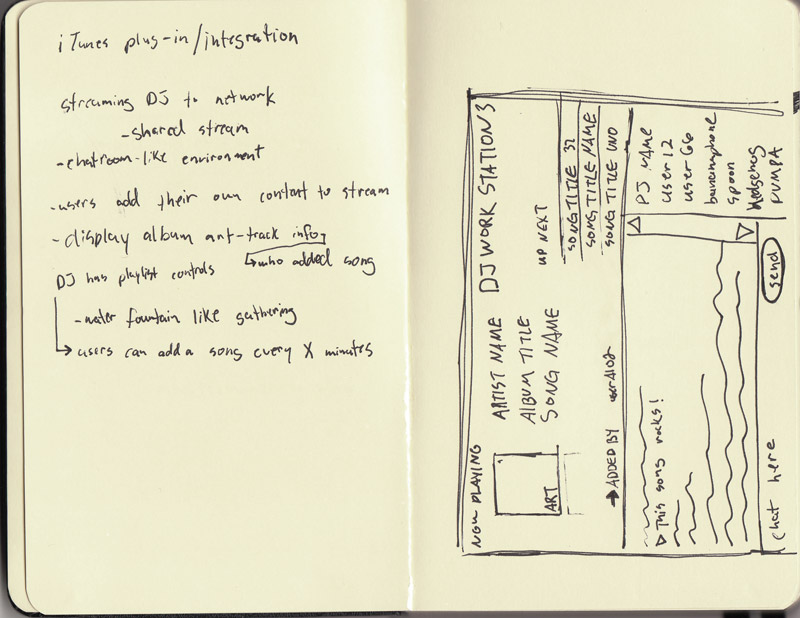 iTunes plug-in/integration
streaming DJ to network
-shared stream
-chatroom-like environment
-users add their own content to stream
-display album art-track info
who added song
DJ has playlist controls
-water fountain like gathering
users can add a song every X minutes
NOW PLAYING
DJ WORK STATION 3
ART
ARTIST NAME
ALBUM TITLE
SONG NAME
UP NEXT
SONG TITLE 32
SONG TITLE NAME
SONG TITLE UNO
ADDED BY user4102
This song rocks!
DJ NAME
user12
user66
bananaphone
spoon
Hedgehog
PUMPA
chat here
send